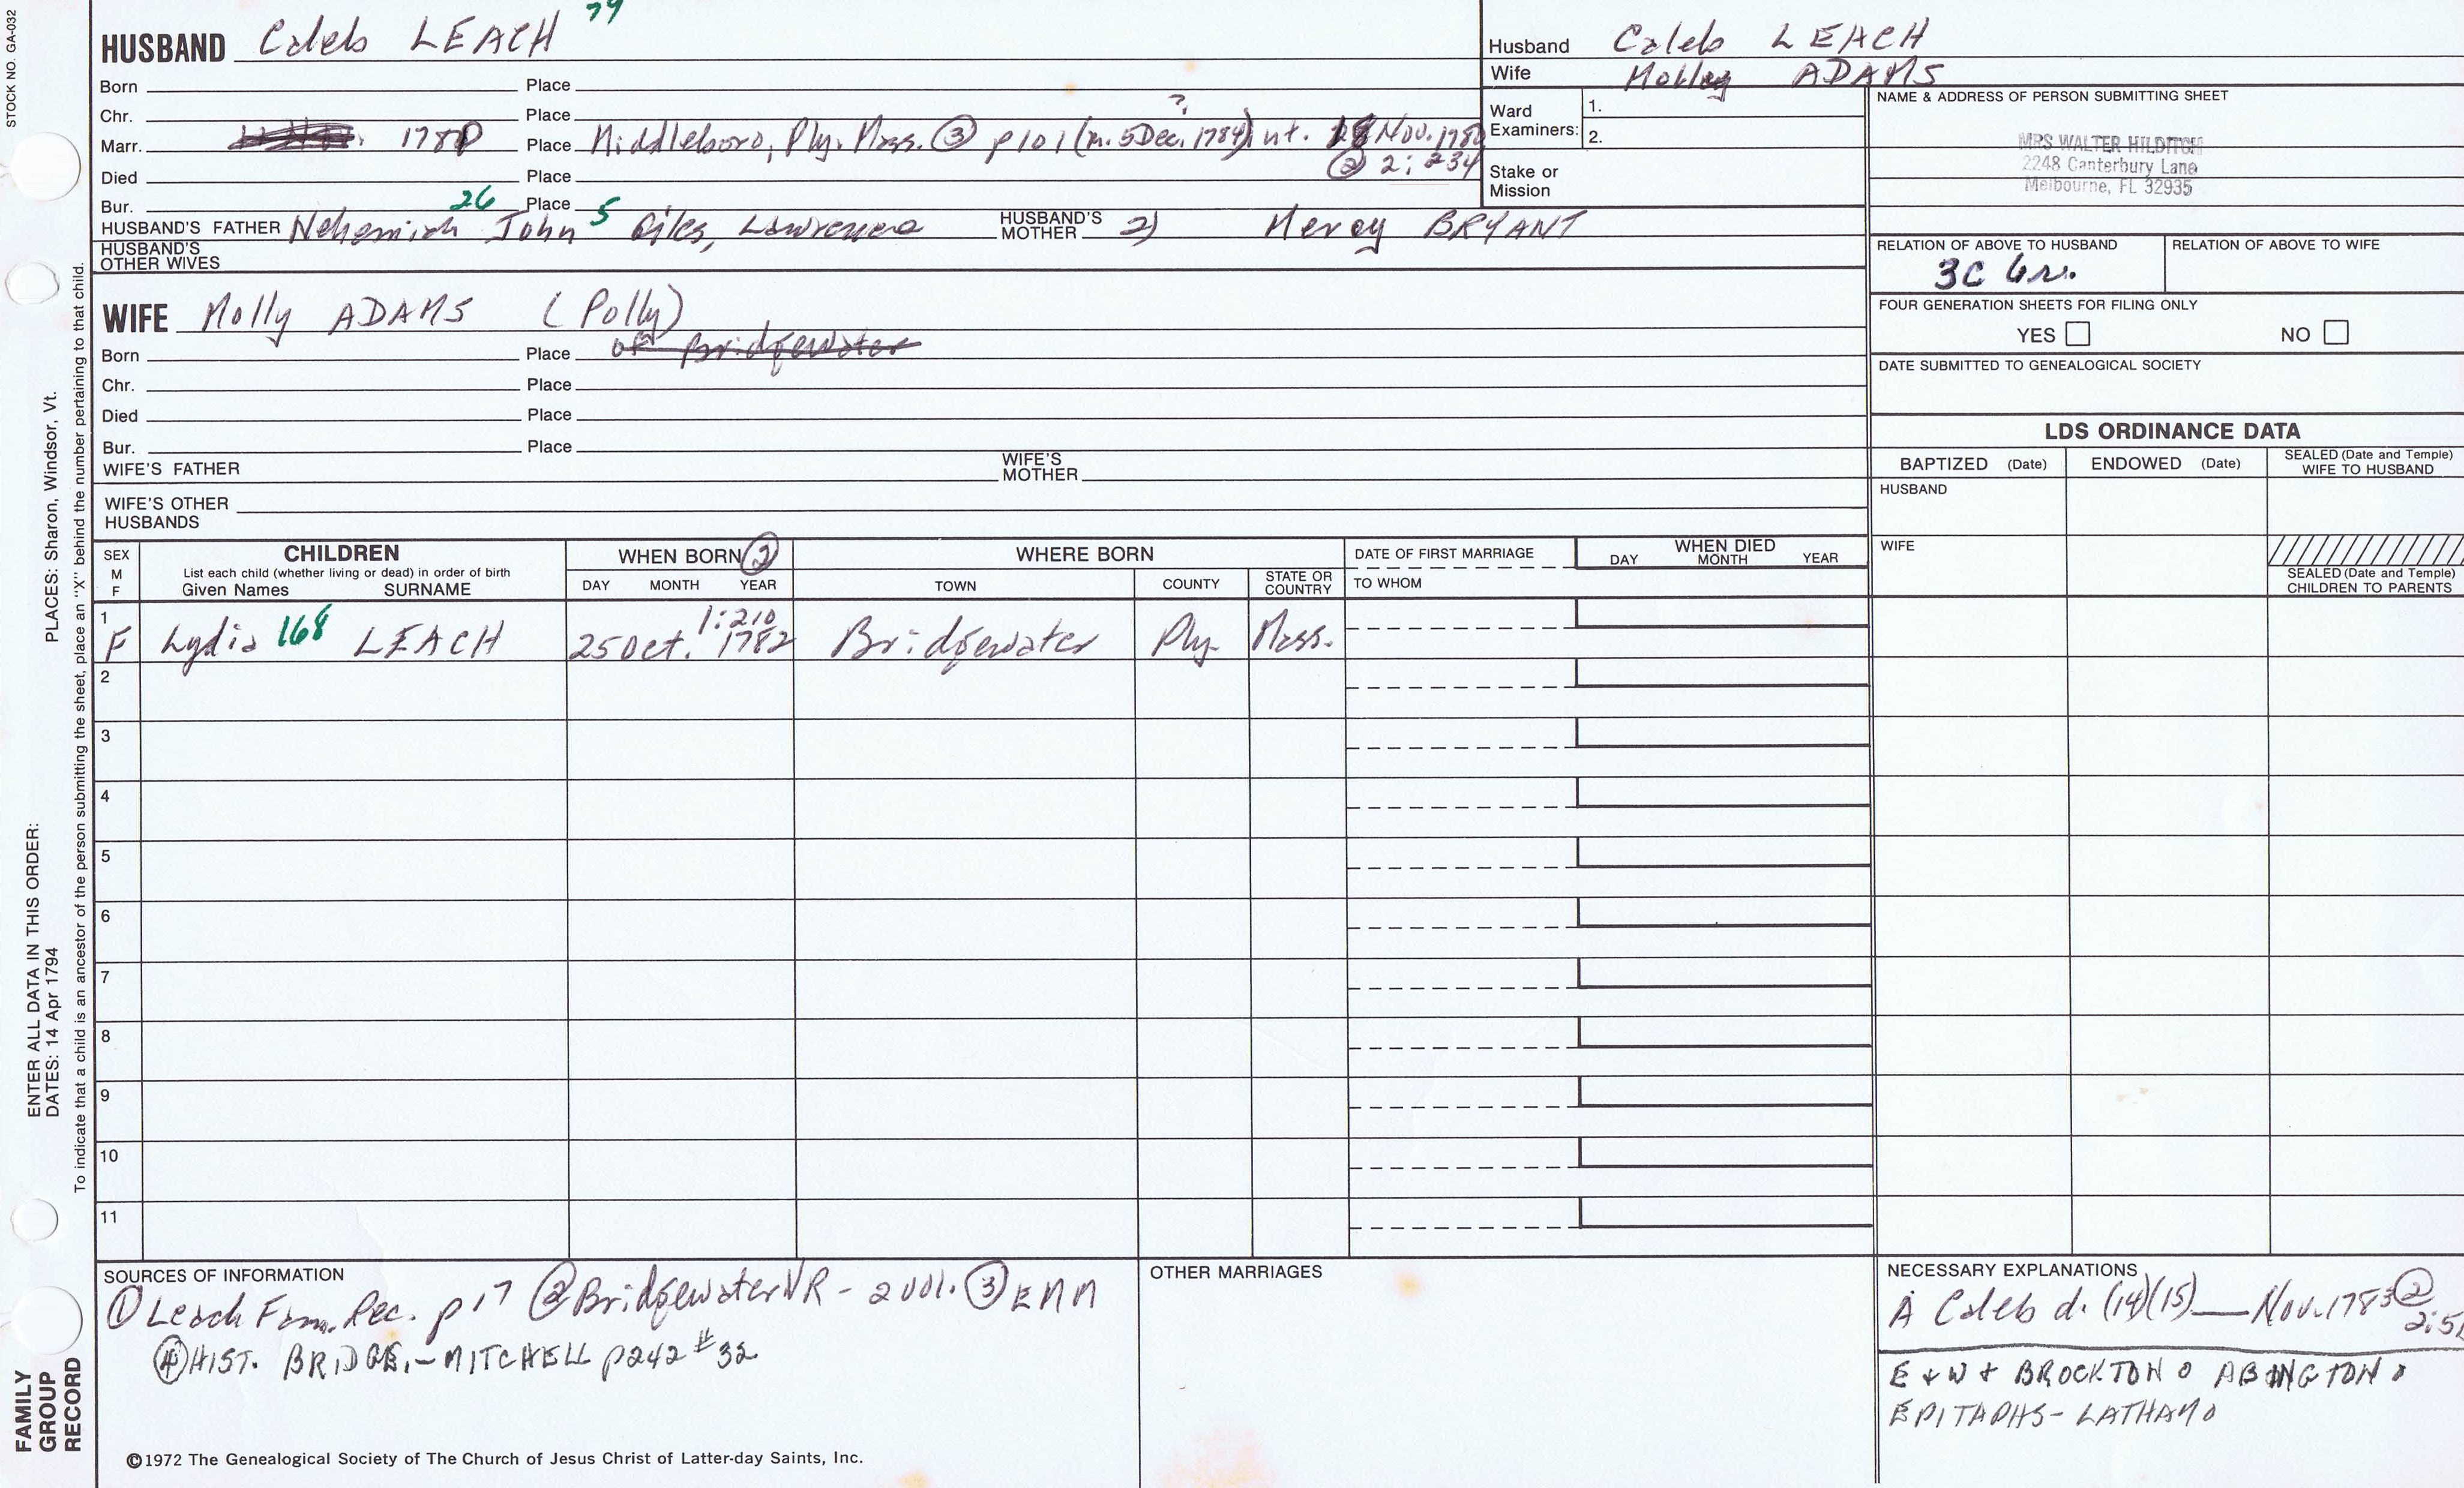 STOCK NO. GA-032
79
HUSBAND Caleb LEACH
Husband Caleb LEACH
Wife Molley ADAMS
Born Place
Chr. Place
?
Marr. 1780 Place Middleboro, Ply. Mass. ③ p101 (m. 5 Dec. 1784) int. Nov. 1780
② 2:234
Died Place
Bur. Place
Ward
Examiners: 1.
2.
Stake or
Mission
NAME & ADDRESS OF PERSON SUBMITTING SHEET
MRS WALTER HILDITCH
2248 Canterbury Lane
Melbourne, FL 32935
26 5
HUSBAND'S FATHER Nehemiah John Giles, Lawrence HUSBAND'S MOTHER 2) Mercy BRYANT
HUSBAND'S
OTHER WIVES
RELATION OF ABOVE TO HUSBAND
3C 6r.
RELATION OF ABOVE TO WIFE
WIFE Molly ADAMS (Polly)
Born Place of Bridgewater
Chr. Place
Died Place
Bur. Place
WIFE'S FATHER WIFE'S MOTHER
WIFE'S OTHER
HUSBANDS
FOUR GENERATION SHEETS FOR FILING ONLY
YES NO
DATE SUBMITTED TO GENEALOGICAL SOCIETY
LDS ORDINANCE DATA
BAPTIZED (Date) ENDOWED (Date) SEALED (Date and Temple)
WIFE TO HUSBAND
HUSBAND
WIFE
SEALED (Date and Temple)
CHILDREN TO PARENTS
SEX
M
F
CHILDREN
List each child (whether living or dead) in order of birth
Given Names SURNAME
WHEN BORN ②
DAY MONTH YEAR
WHERE BORN
TOWN COUNTY STATE OR COUNTRY
DATE OF FIRST MARRIAGE
TO WHOM
WHEN DIED
DAY MONTH YEAR
1 1:210
F Lydia 168 LEACH 25 Oct. 1782 Bridgewater Ply. Mass.
2
3
4
5
6
7
8
9
10
11
SOURCES OF INFORMATION
① Leach Fam. Rec. p17 ② Bridgewater VR - 2 vol. ③ EMM
④ HIST. BRIDGE. - MITCHELL p242 #32
OTHER MARRIAGES
NECESSARY EXPLANATIONS
A Caleb d. (14)(15) — Nov. 1783 ②
E + W + BROCKTON o ABINGTON o
EPITAPHS - LATHAM o
©1972 The Genealogical Society of The Church of Jesus Christ of Latter-day Saints, Inc.
FAMILY
GROUP
RECORD
ENTER ALL DATA IN THIS ORDER:
DATES: 14 Apr 1794
PLACES: Sharon, Windsor, Vt.
To indicate that a child is an ancestor of the person submitting the sheet, place an "X" behind the number pertaining to that child.